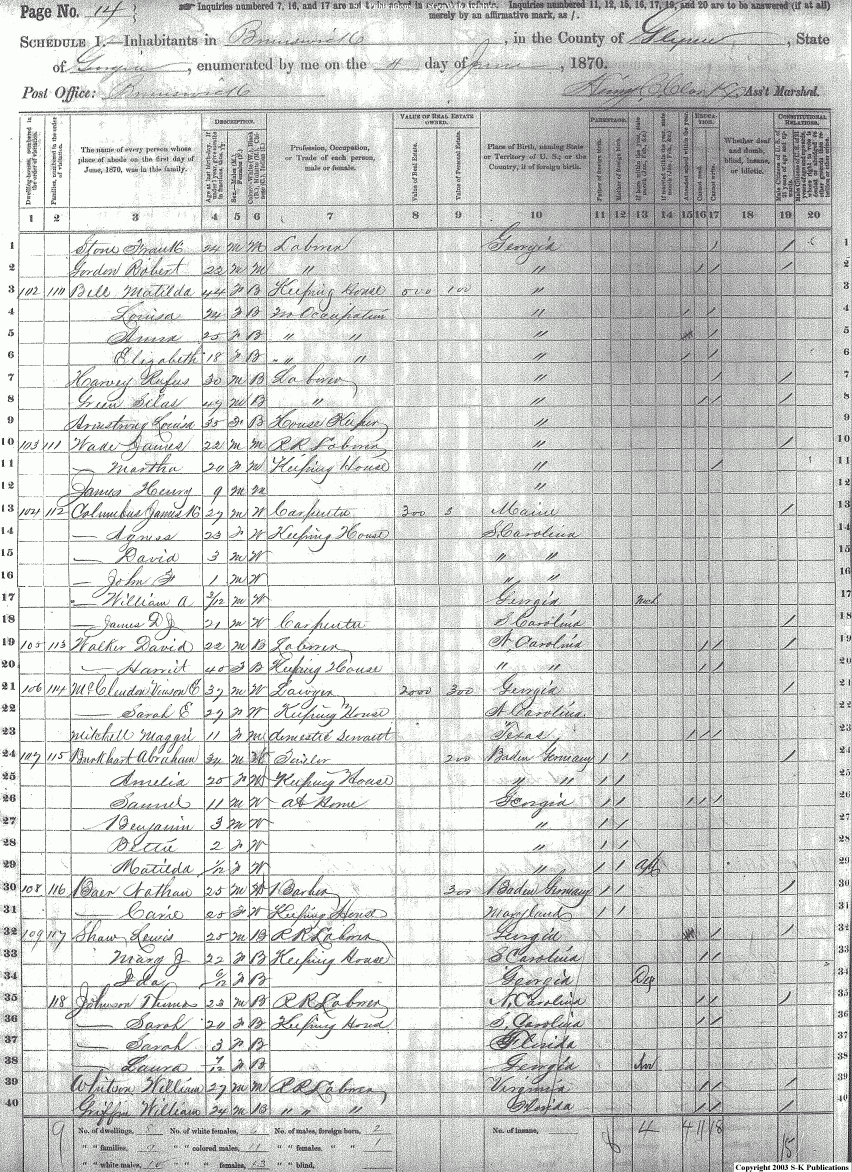 Page No. 14
Inquiries numbered 7, 16, and 17 are not to be asked in respect to infants. Inquiries numbered 11, 12, 15, 16, 17, 19, and 20 are to be answered (if at all)
merely by an affirmative mark, as /.
SCHEDULE 1.—Inhabitants in Brunswick, in the County of Glynn, State
of Georgia, enumerated by me on the 4 day of June, 1870.
Post Office: Brunswick Ass't Marshal.
DESCRIPTION. VALUE OF REAL ESTATE OWNED. PARENTAGE. EDUCATION. CONSTITUTIONAL RELATIONS.
The name of every person whose place of abode on the first day of June, 1870, was in this family.
Profession, Occupation, or Trade of each person, male or female.
Value of Real Estate. Value of Personal Estate.
Place of Birth, naming State or Territory of U. S.; or the Country, if of foreign birth.
Father of foreign birth. Mother of foreign birth.
Whether deaf and dumb, blind, insane, or idiotic.
1 2 3 4 5 6 7 8 9 10 11 12 13 14 15 16 17 18 19 20
1 Stone Frank 24 M M Laborer Georgia / / 1
2 Gordon Robert 22 M M " " / / / 2
3 102 110 Bell Matilda 44 F B Keeping House 500 100 " 3
4 Louisa 24 F B No Occupation " / / 4
5 Anna 25 F B " " " / 5
6 Elizabeth 18 F B " " " / / 6
7 Harvey Rufus 30 M B Laborer " / / 7
8 Green Silas 47 M B " " / / / 8
9 Armstrong Louisa 35 F B House Keeper " 9
10 103 111 Wade James 22 M M RR Laborer " / 10
11 — Martha 20 F M Keeping House " / 11
12 James Henry 9 M M " 12
13 104 112 Columbus James K 27 M W Carpenter 300 Maine / 13
14 — Agness 23 F W Keeping House S. Carolina 14
15 — David 3 M W " " 15
16 — John F 1 M W " " 16
17 — William A 3/12 M W Georgia Mch 17
18 — James D J 21 M W Carpenter S. Carolina / 18
19 105 113 Walker David 22 M B Laborer N. Carolina / / / 19
20 — Harriet 40 F B Keeping House " " / / 20
21 106 114 McClendon Vinson E 37 M W Lawyer 2000 300 Georgia / 21
22 — Sarah E 27 F W Keeping House N. Carolina 22
23 Mitchell Maggie 11 F M domestic Servant Texas / / / 23
24 107 115 Burkhart Abraham 34 M W 200 Baden Germany / / / 24
25 Amelia 25 F W Keeping House " " / / 25
26 Samuel 11 M W at Home Georgia / / / / / 26
27 Benjamin 3 M W " / / 27
28 Bettie 2 F W " / / 28
29 Matilda 1/12 F W " / / Apl 29
30 108 116 Baer Nathan 25 M W Barber 300 Baden Germany / / / 30
31 — Carrie 25 F W Keeping House Maryland / / 31
32 109 117 Shaw Lewis 25 M B RR Laborer Georgia / / 32
33 Mary J 22 F B Keeping House S. Carolina / / 33
34 Ida 6/12 F B Georgia Dec 34
35 118 Johnson Thomas 23 M B RR Laborer N. Carolina / / / 35
36 — Sarah 20 F B Keeping House S. Carolina / / 36
37 — Sarah 3 F B Florida 37
38 Laura F B Georgia 38
39 Whitson William 27 M M RR Laborer Virginia / / / 39
40 Griffin William 24 M B " " " Florida / / / 40
No. of dwellings, 8 No. of white females, No. of males, foreign born, 2 No. of insane, 4 4 11 18
" " families, 9 " " colored males, 11 " " females, " " 1
" " white males, 10 " " females, 13 " " blind,
Copyright 2003 S-K Publications